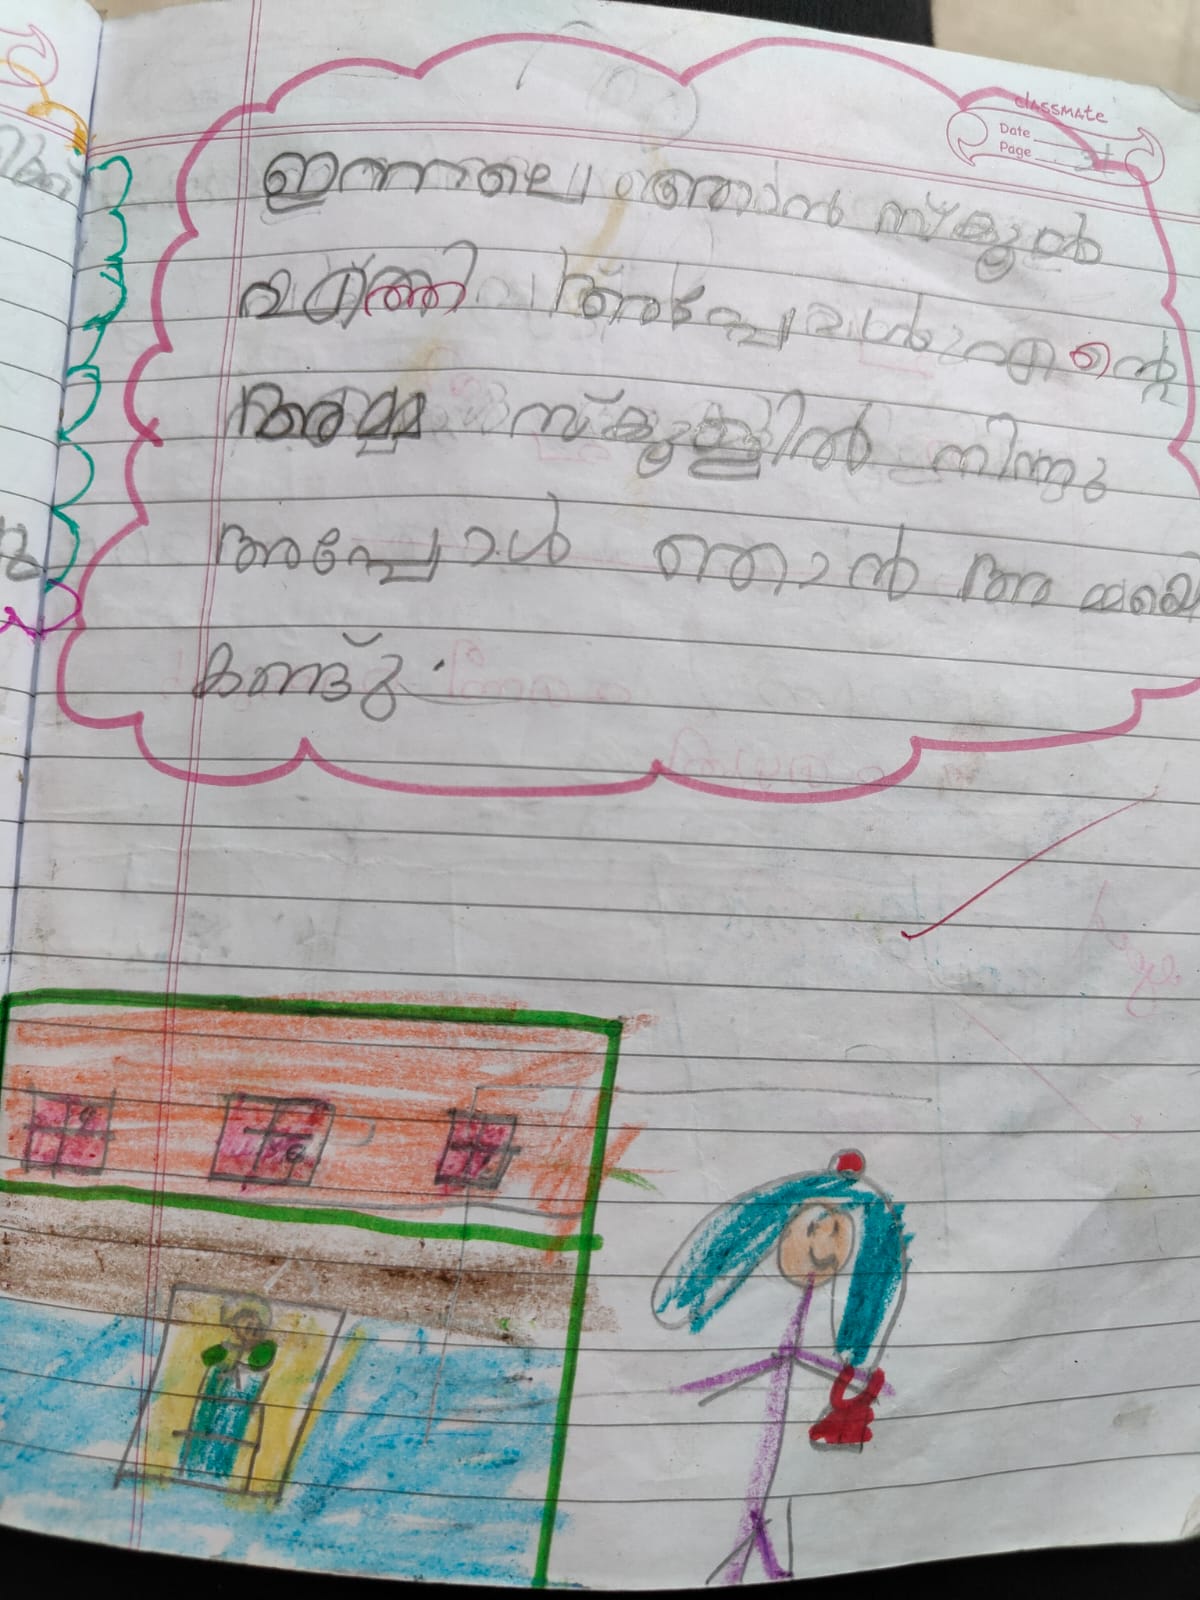 classmate
Date
Page
ഇന്നലെ ഞാൻ സ്കൂൾ
അപ്പോൾ എന്റെ
അമ്മ സ്കൂളിൽ നിന്നു
അപ്പോൾ ഞാൻ അമ്മയെ
കണ്ടു.